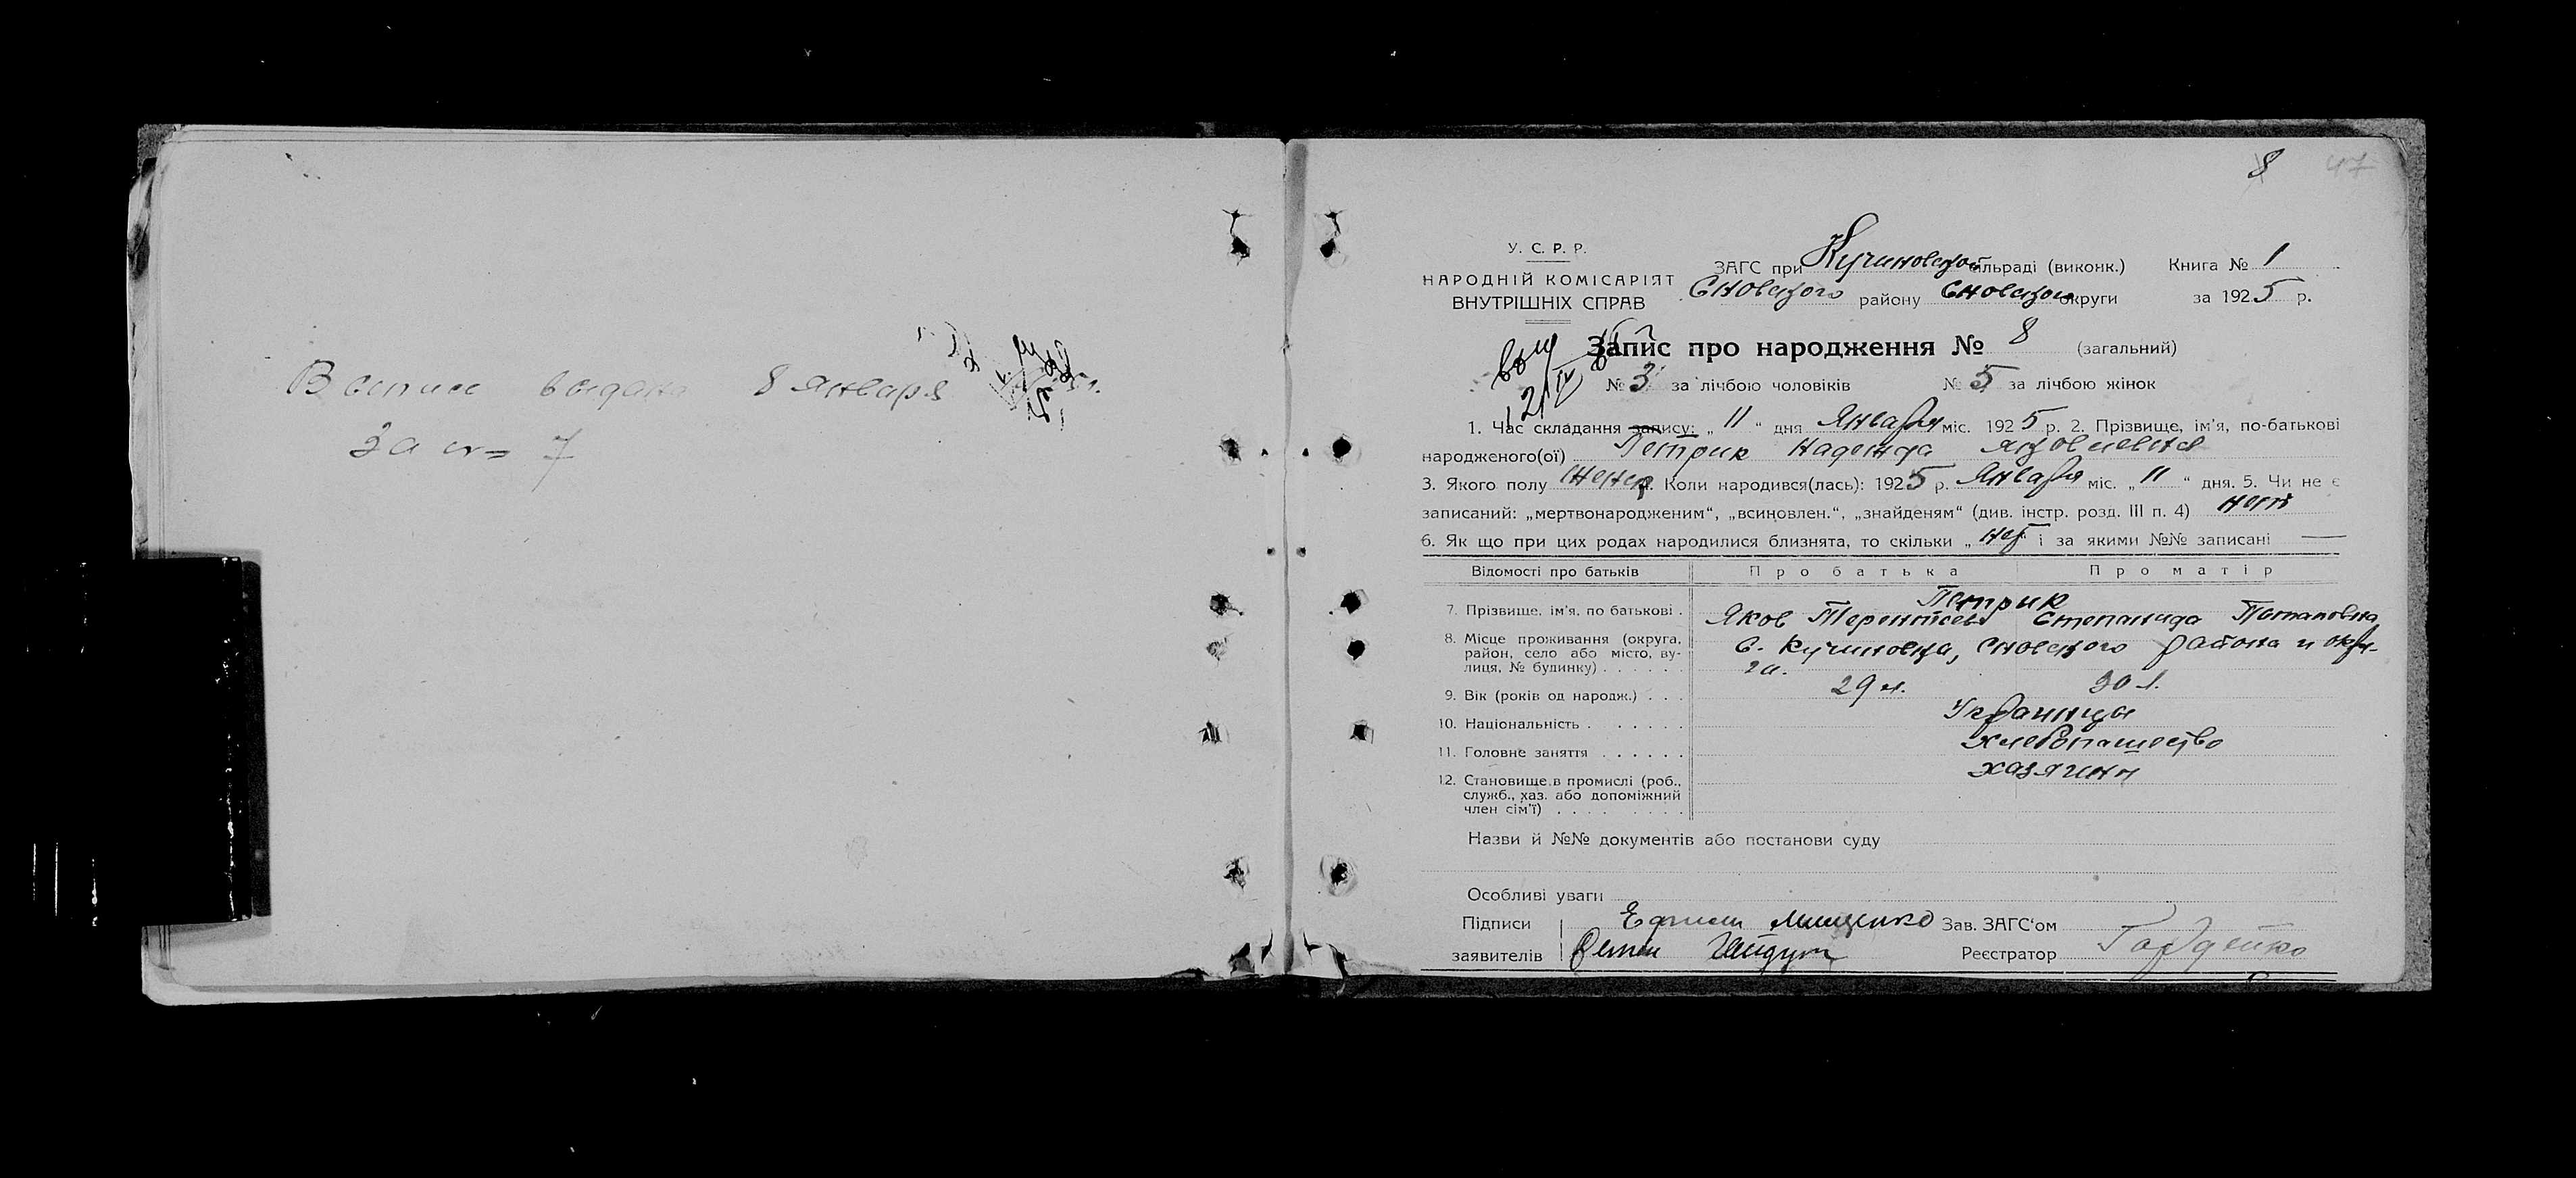 Выписи выдана 8 января
За № 7
8 47
У. С. Р. Р.
НАРОДНІЙ КОМІСАРІЯТ
ВНУТРІШНІХ СПРАВ
ЗАГС при Кучиновской сільраді (виконк.) Книга № 1
Сновского району Сновского округи за 1925 р.
Запис про народження № 8 (загальний)
№ 3 за лічбою чоловіків № 5 за лічбою жінок
1. Час складання запису: „ 11 “ дня Января міс. 1925 р. 2. Прізвище, ім'я, по-батькові
народженого(ої) Петрик Надежда Яковлевна
3. Якого полу женск. Коли народився(лась): 1925 р. Января міс. „ 11 “ дня. 5. Чи не є
записаний: „мертвонародженим“, „всиновлен.“, „знайденям“ (див. інстр. розд. III п. 4) нет
6. Як що при цих родах народилися близнята, то скільки „ нет і за якими №№ записані —
Відомості про батьків Про батька Про матір
Петрик
7. Прізвище, ім'я, по батькові . Яков Терентьев Степанида Потаповна
8. Місце проживання (округа, район, село або місто, вулиця, № будинку) . . . . . с. Кучиновка, Сновского района и окру-
га.
9. Вік (років од народж.) . . . 29 л. 30 л.
10. Національність . . . . . . Украинцы
11. Головне заняття . . . . . . хлебопашество
12. Становище в промислі (роб., служб., хаз. або допоміжний член сім'ї) . . . . . . . . хазяини
Назви й №№ документів або постанови суду
Особливі уваги
Підписи Мищенко Зав. ЗАГС'ом
заявителів Реєстратор Гордейко